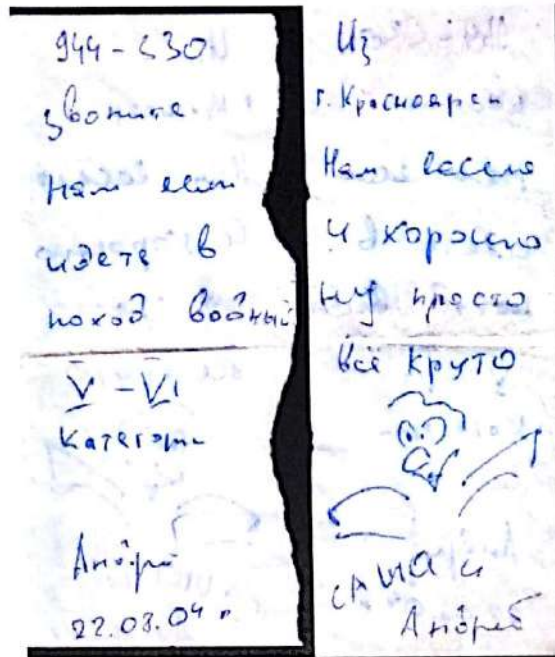 944-530
звоните
нам если
идете в
поход водный
V-VI
Категори
Андрей
22.08.04 г
Из
г. Красноярск
Нам весело
и хорошо
ну просто
всё круто
САША и
Андрей